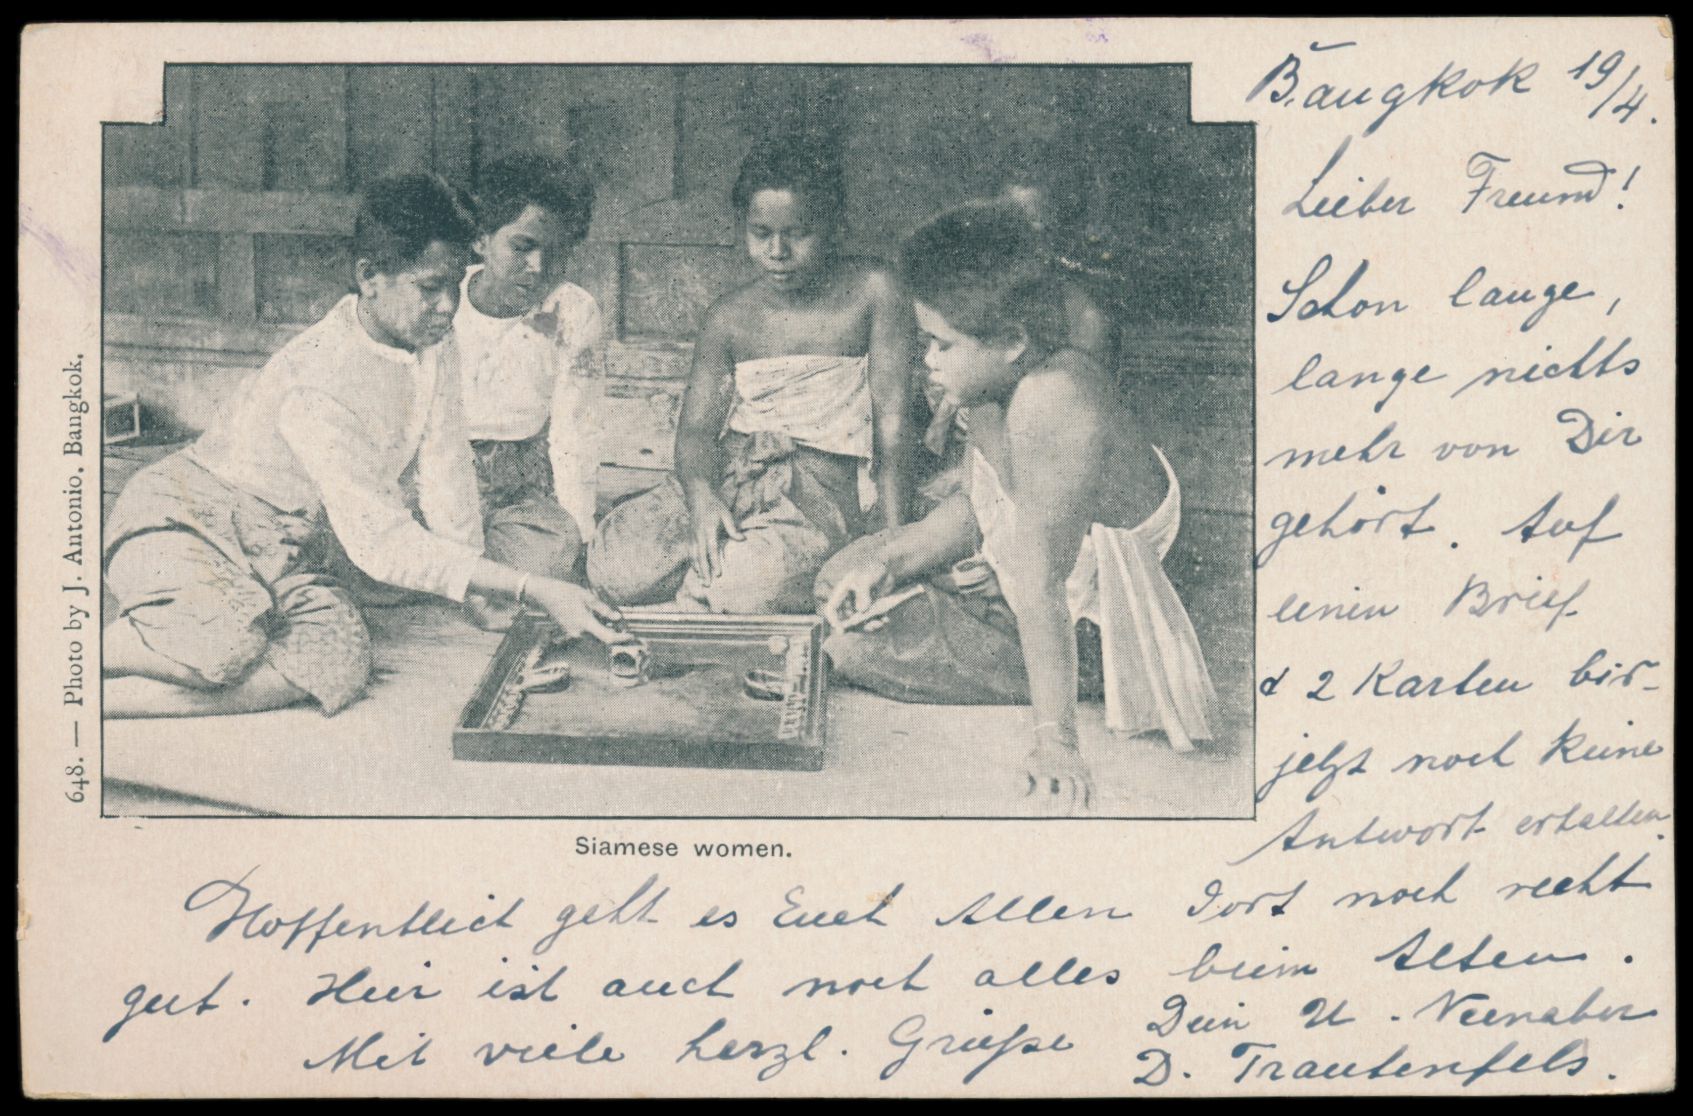 Bangkok 19/4.
Lieber Freund!
Schon lange,
lange nichts
mehr von Dir
gehört. Auf
einen Brief
& 2 Karten bis-
jetzt noch keine
Antwort erhalten.
Hoffentlich geht es Euch Allen dort noch recht
gut. Hier ist auch noch alles beim Alten.
Mit viele herzl. Grüße Dein
D. Trautenfels.
648. — Photo by J. Antonio. Bangkok.
Siamese women.